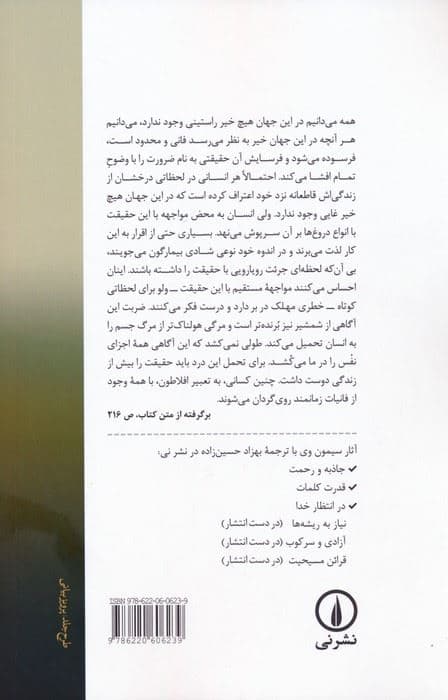 همه می‌دانیم در این جهان هیچ خیر راستینی وجود ندارد، می‌دانیم
هر آنچه در این جهان خیر به نظر می‌رسد فانی و محدود است،
فرسوده می‌شود و فرسایش آن حقیقتی به نام ضرورت را با وضوحِ
تمام افشا می‌کند. احتمالاً هر انسانی در لحظاتی درخشان از
زندگی‌اش قاطعانه نزد خود اعتراف کرده است که در این جهان هیچ
خیر غایی وجود ندارد. ولی انسان به محض مواجهه با این حقیقت
با انواع دروغ‌ها بر آن سرپوش می‌نهد. بسیاری حتی از اقرار به این
کار لذت می‌برند و در اندوه خود نوعی شادی بیمارگون می‌جویند،
بی آن‌که لحظه‌ای جرئت رویارویی با حقیقت را داشته باشند. اینان
احساس می‌کنند مواجههٔ مستقیم با این حقیقت ــ ولو برای لحظاتی
کوتاه ــ خطری مهلک در بر دارد و درست فکر می‌کنند. ضربت این
آگاهی از شمشیر نیز بُرنده‌تر است و مرگی هولناک‌تر از مرگ جسم را
به انسان تحمیل می‌کند. طولی نمی‌کشد که این آگاهی همهٔ اجزای
نفْس را در ما می‌کُشد. برای تحمل این درد باید حقیقت را بیش از
زندگی دوست داشت. چنین کسانی، به تعبیر افلاطون، با همهٔ وجود
از فانیات زمانمند روی‌گردان می‌شوند.
برگرفته از متن کتاب، ص ۲۱۶
آثار سیمون وی با ترجمهٔ بهزاد حسین‌زاده در نشر نی:
✓ جاذبه و رحمت
✓ قدرت کلمات
✓ در انتظار خدا
نیاز به ریشه‌ها (در دست انتشار)
آزادی و سرکوب (در دست انتشار)
قرائن مسیحیت (در دست انتشار)
ISBN 978-622-06-0623-9
9 786220 606239
نشر نی
طرح جلد: پرویز بیانی